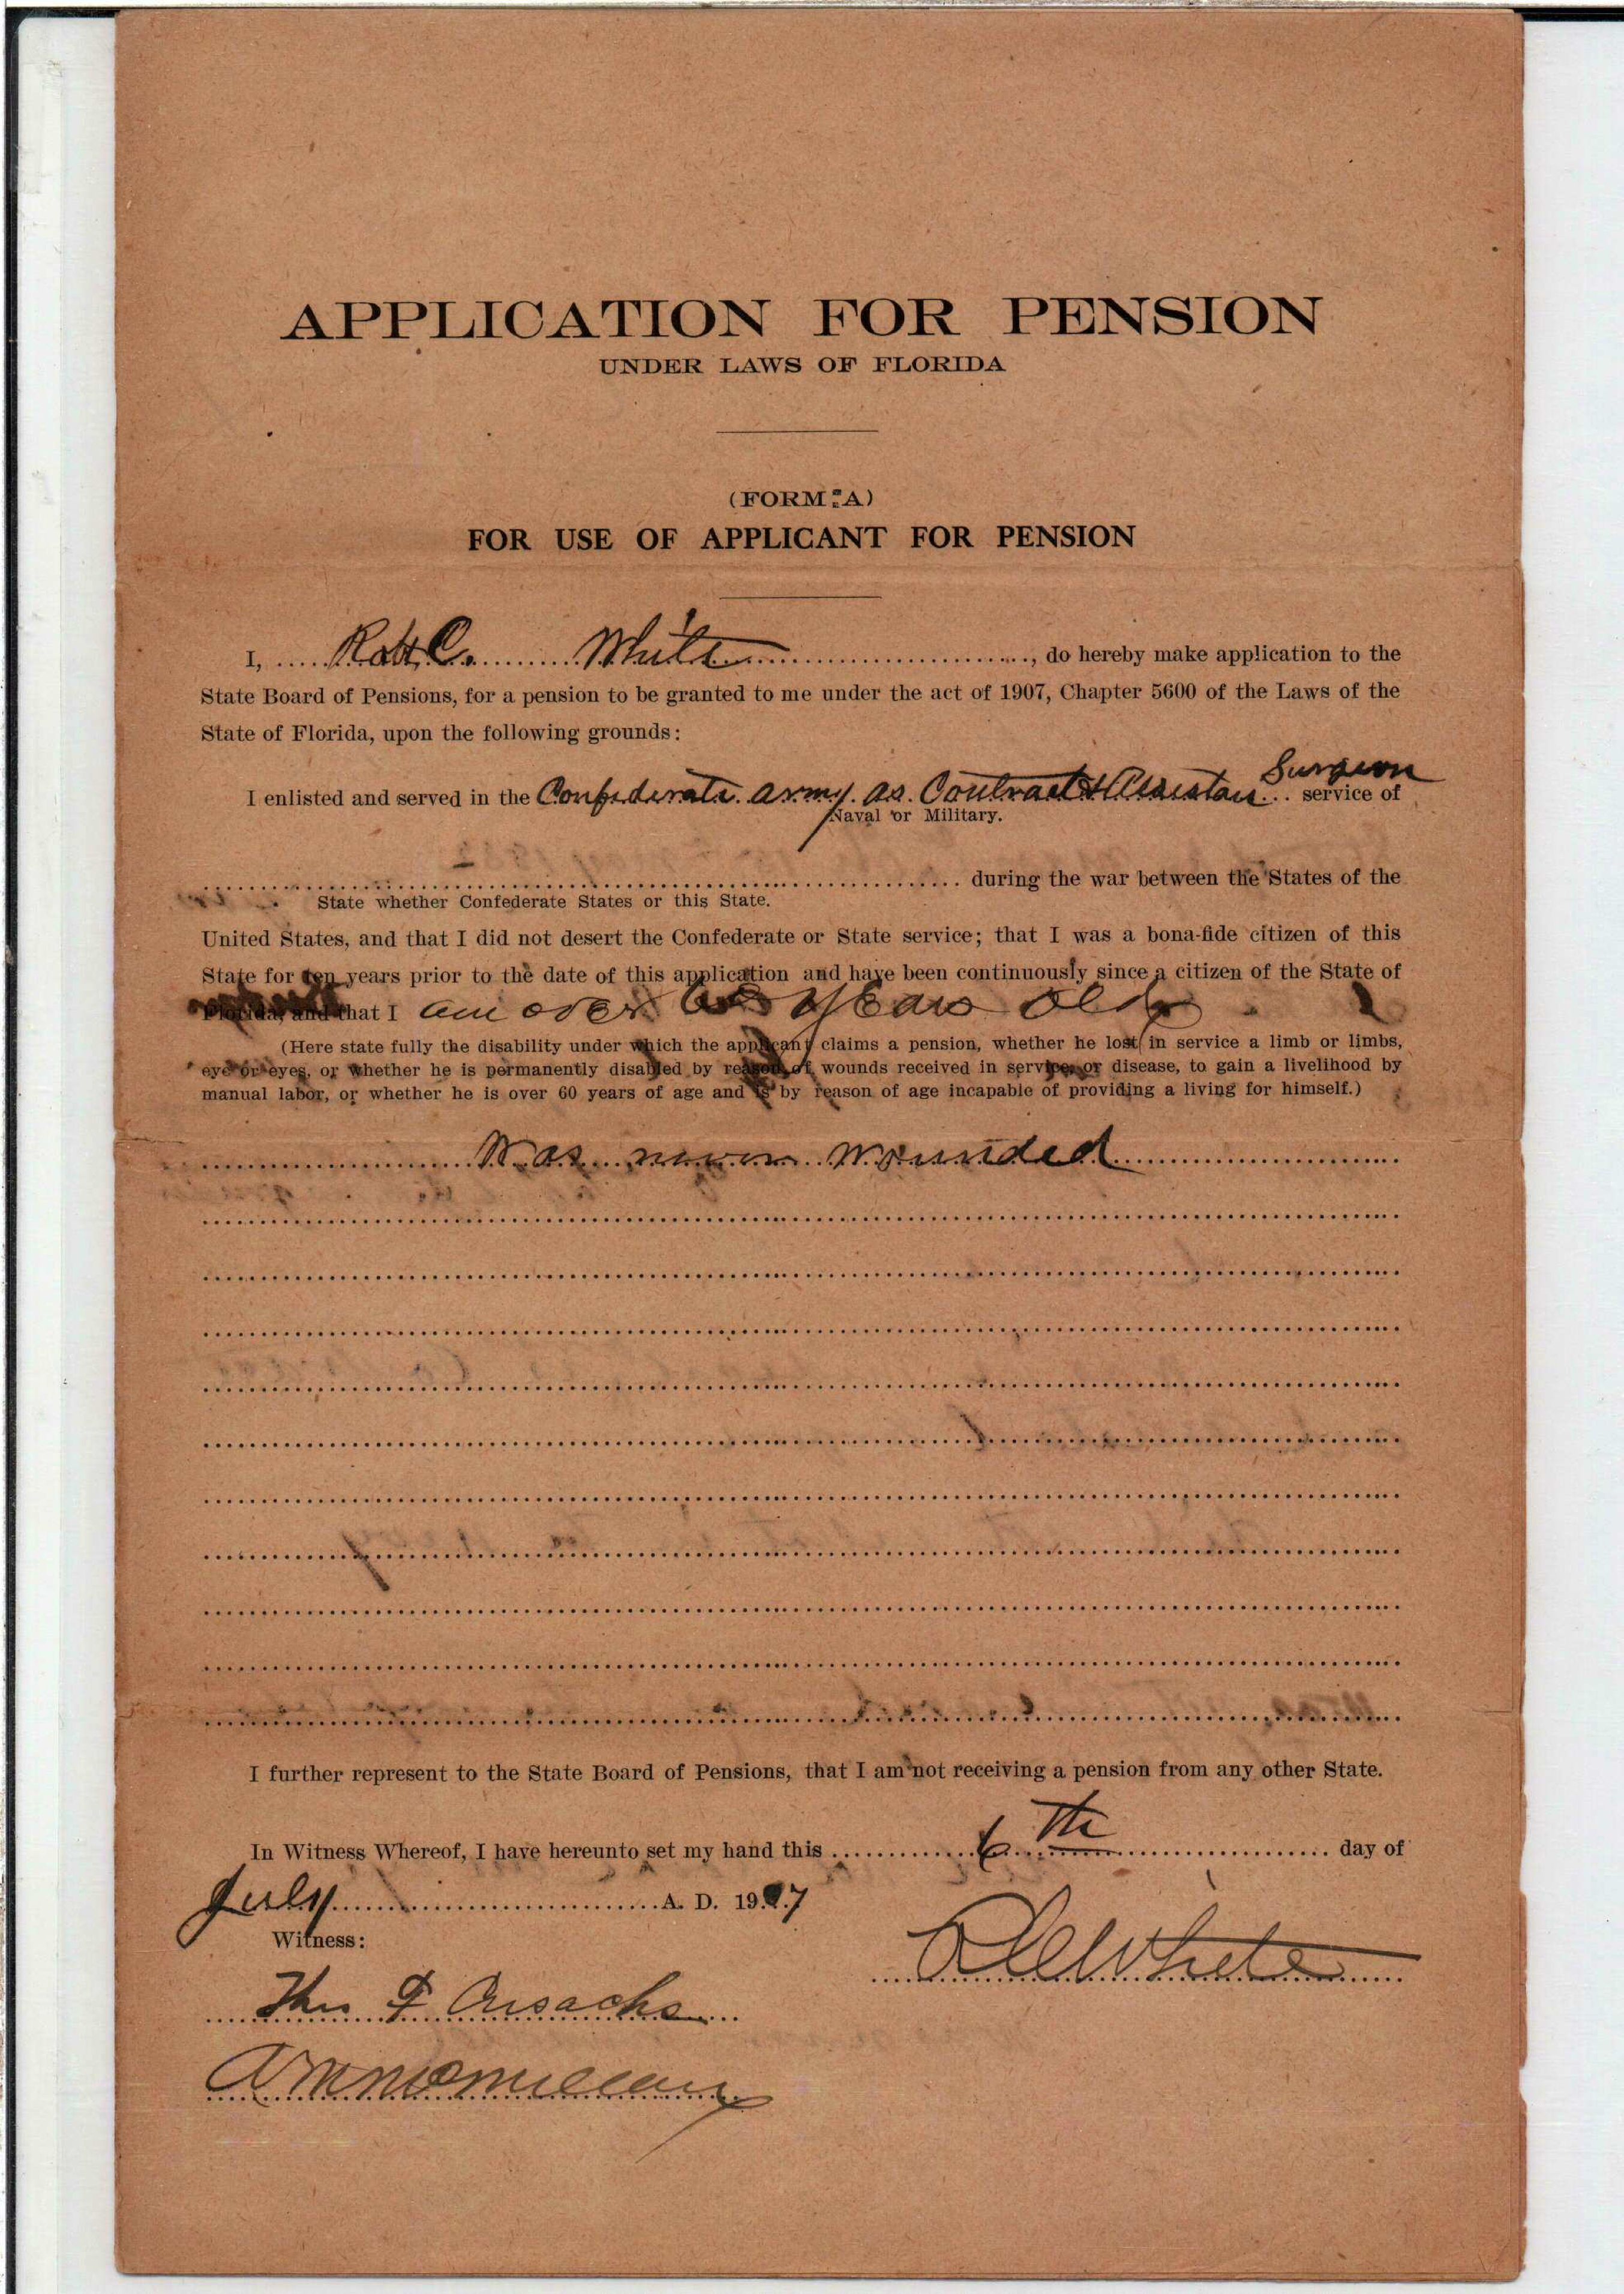 APPLICATION FOR PENSION
UNDER LAWS OF FLORIDA
(FORM A)
FOR USE OF APPLICANT FOR PENSION
I, Robt C. White, do hereby make application to the
State Board of Pensions, for a pension to be granted to me under the act of 1907, Chapter 5600 of the Laws of the
State of Florida, upon the following grounds:
Surgeon
I enlisted and served in the Confederate army as Contract & Assistant service of
Naval or Military.
during the war between the States of the
State whether Confederate States or this State.
United States, and that I did not desert the Confederate or State service; that I was a bona-fide citizen of this
State for ten years prior to the date of this application and have been continuously since a citizen of the State of
Florida, and that I am over years old
(Here state fully the disability under which the applicant claims a pension, whether he lost in service a limb or limbs,
eye or eyes, or whether he is permanently disabled by reason of wounds received in service, or disease, to gain a livelihood by
manual labor, or whether he is over 60 years of age and is by reason of age incapable of providing a living for himself.)
Was never wounded
I further represent to the State Board of Pensions, that I am not receiving a pension from any other State.
In Witness Whereof, I have hereunto set my hand this 6th day of
July A. D. 1907
Witness:
R C White